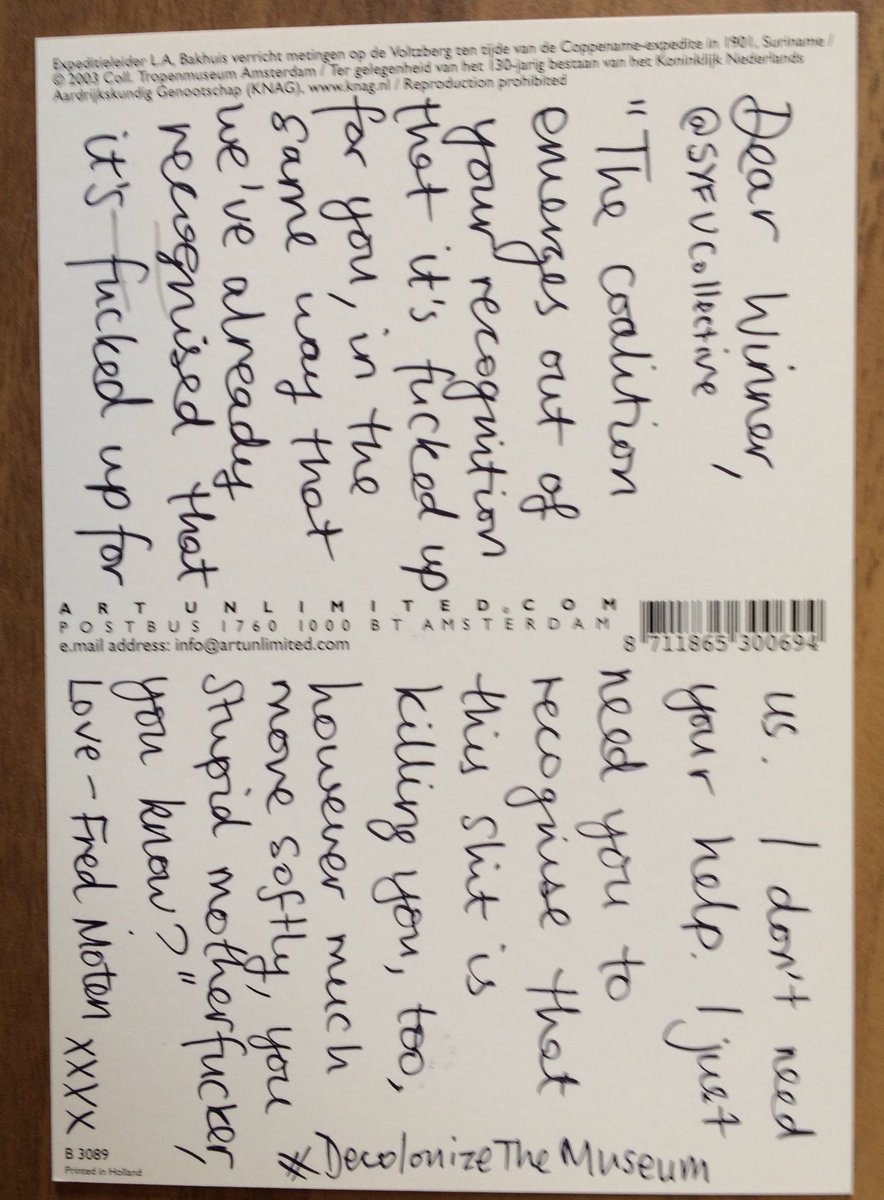 Expeditieleider L.A. Bakhuis verricht metingen op de Voltzberg ten tijde van de Coppename-expeditie in 1901, Suriname /
© 2003 Coll. Tropenmuseum Amsterdam / Ter gelegenheid van het 130-jarig bestaan van het Koninklijk Nederlands
Aardrijkskundig Genootschap (KNAG), www.knag.nl / Reproduction prohibited
Dear Winner,
@SYFUCollective
"The coalition
emerges out of
your recognition
that it's fucked up
for you, in the
same way that
we've already
recognised that
it's fucked up for
ARTUNLIMITED.COM
POSTBUS 1760 1000 BT AMSTERDAM
e.mail address: info@artunlimited.com
8 711865 300694
us. I don't need
your help. I just
need you to
recognise that
this shit is
killing you, too,
however much
move softly, you
stupid motherfucker,
you know?"
Love - Fred Moten xxxx
#DecolonizeTheMuseum
B 3089
Printed in Holland